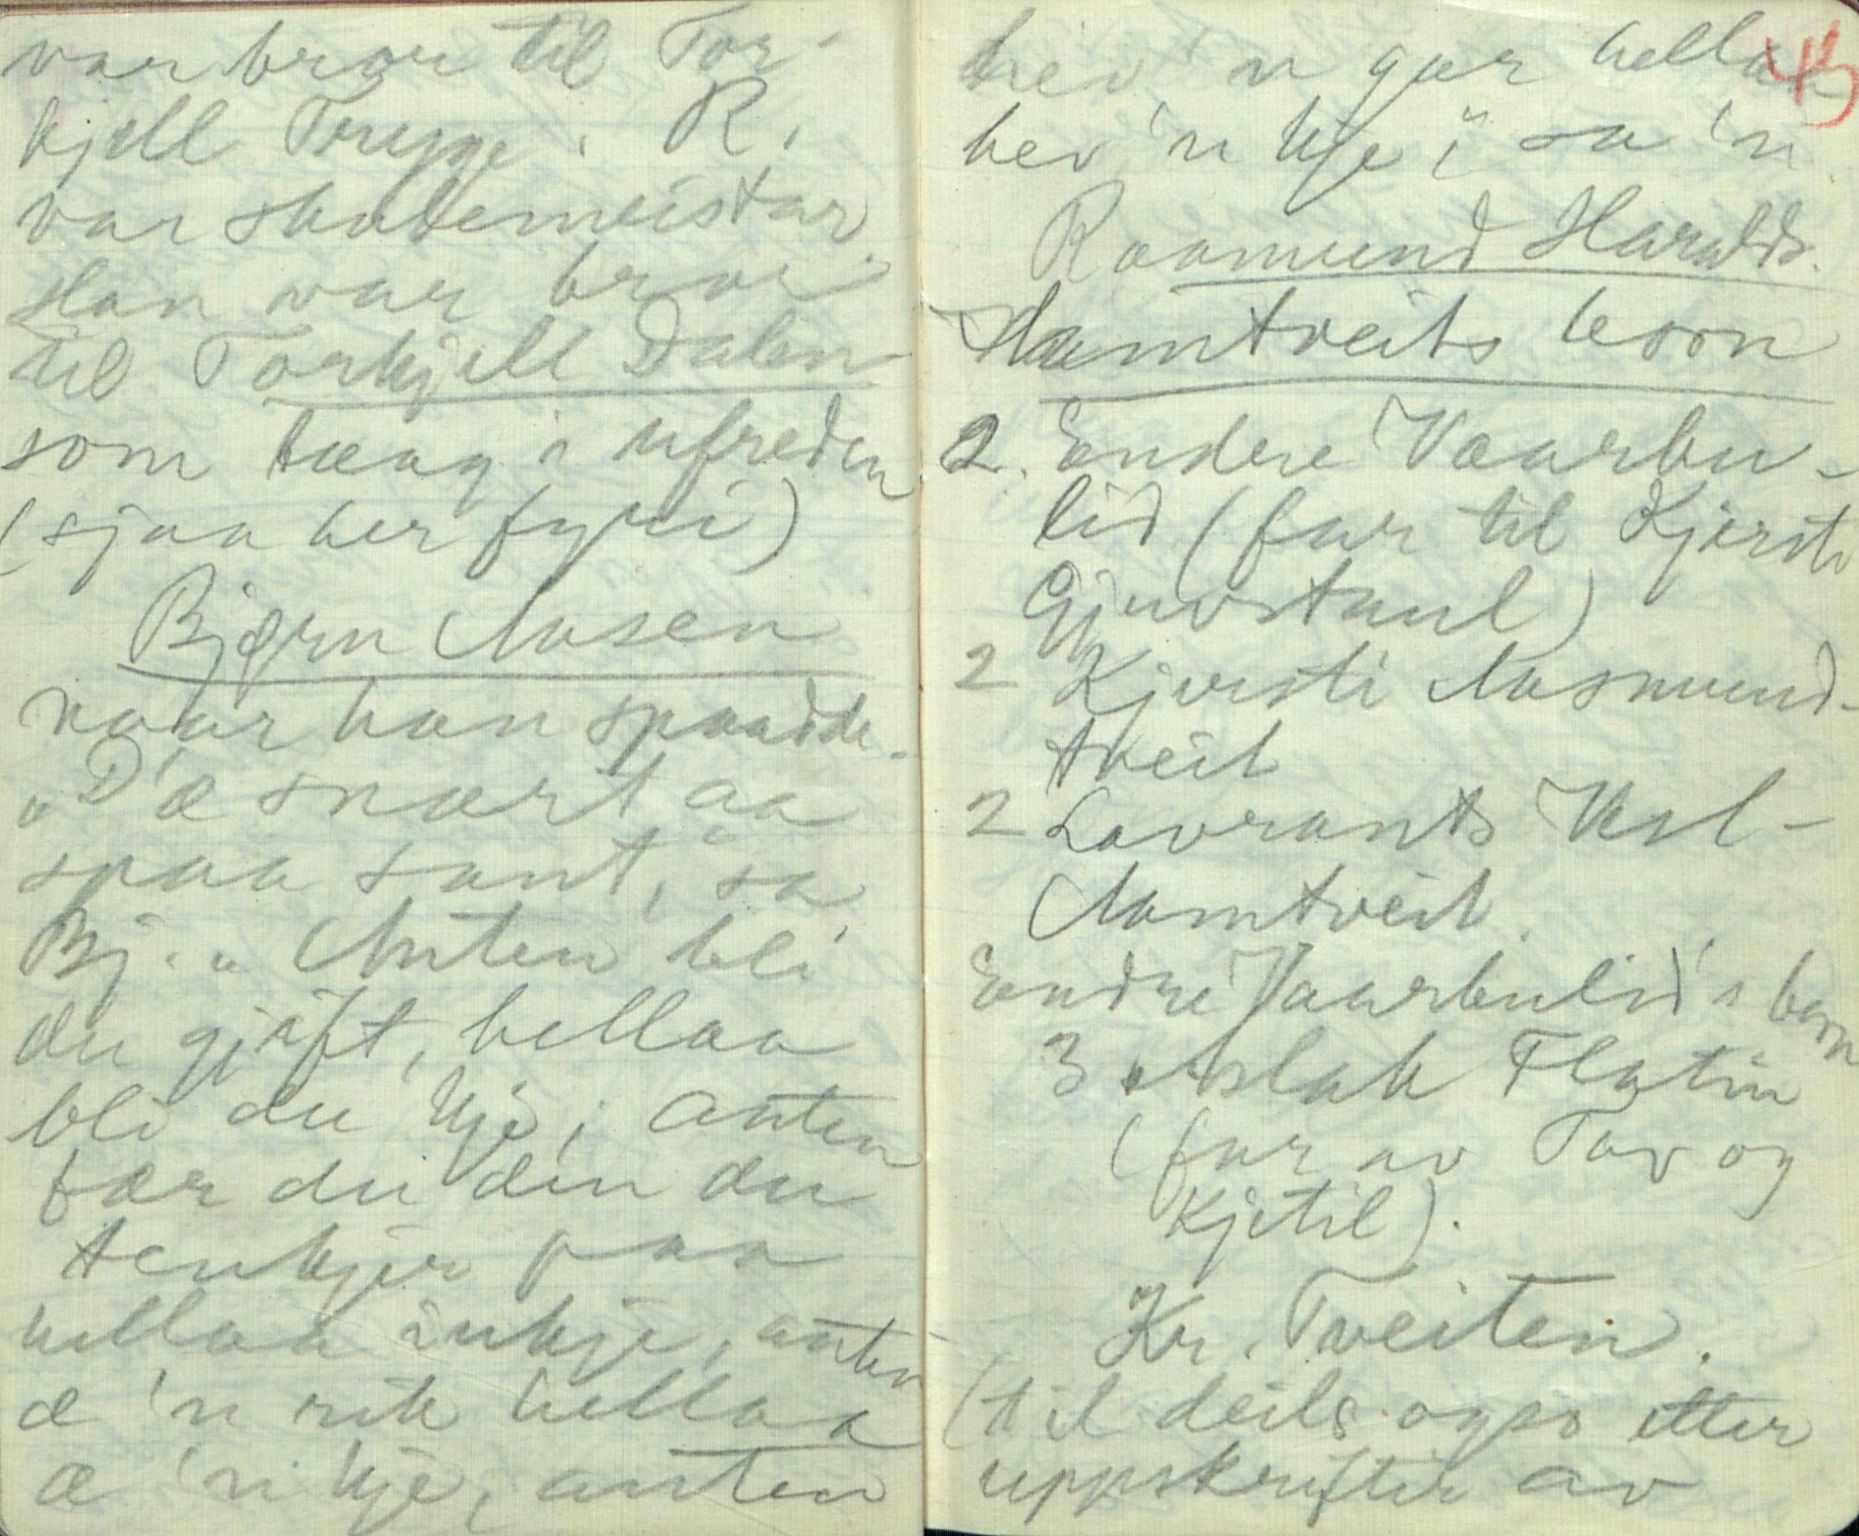 var bror til Tor-
kjell Trygge. R.
var skulemeistar.
Han var bror
til Torkjell Dalen
som tæag i ufreden
(sjaa her fyri)
Bjørn Aasen
naar han spaadde.
"D'æ snart aa
spaa sant," sa
Bj. "Anten bli
du gjift, hellaa
bli du kje, anten
fær du din du
tenkjer paa
hellaa inkje, anten
æ 'n rik hellaa
æ 'n kje, anten
hev 'n gar hellaa
hev 'n kje," sa 'n.
43
Raamund Haralds.
Hamtveits born
2. Endre Vaarbu-
lid (far til Kjersti
Gjuvstaul)
2 Kjersti Aasmund-
tveit
2 Lavrants Vesl-
Aamtveit.
Endre Vaarbulid's born
3 Aslak Flatin
(far av Tov og
Kjetil).
Kr. Tveiten.
(til deils ogso etter
uppskrifter av